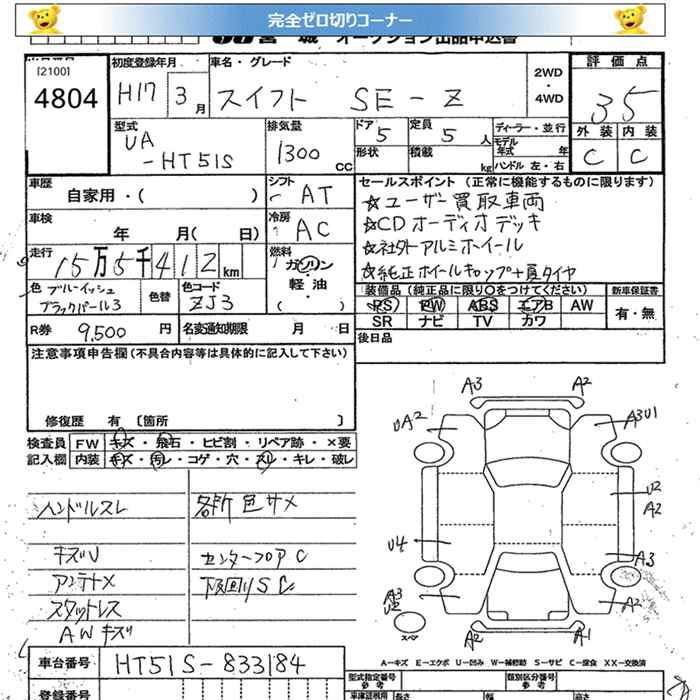 完全ゼロ切りコーナー
宮城 オークション出品申込書
[2100]
4804
初度登録年月
H17 3月
車名・グレード
スイフト SE-Z
2WD
・
4WD
評価点
3.5
外装 内装
C C
型式
UA
-HT51S
排気量
1300 CC
ドア
5
定員
5人
形状
積載
kg
ディーラー・並行
モデル年式 年
ハンドル 左・右
車歴
自家用・( )
シフト
AT
車検
年 月( 日)
冷房
AC
走行
15万5千412km
燃料
ガソリン
・
軽油
( )
色 ブルーイッシュ
ブラックパール3
色替
色コード
ZJ3
R券 9,500 円
名変通知期限 月 日
セールスポイント (正常に機能するものに限ります)
☆ユーザー買取車両
☆CDオーディオデッキ
☆社外アルミホイール
☆純正ホイールキャップ+夏タイヤ
装備品 (純正品に限り○をつけてください)
PS PW ABS エアB AW
SR ナビ TV カワ
新車保証書
有・無
後日品
注意事項申告欄(不具合内容等は具体的に記入して下さい)
修復歴 有 〔箇所 〕
検査員
記入欄
FW キズ・飛石・ヒビ割・リペア跡・×要
内装 キズ・汚レ・コゲ・穴・スレ・キレ・破レ
ハンドルスレ
各所色サメ
キズU
センターフロアC
アンテナ×
下廻りSC
スタットレス
AWキズ
A3 A2
UA2 A3U1
U2
A2
U4
A3
A3
A2
スペア
A2 A1
A-キズ E-エクボ U-凹み W-補修跡 S-サビ C-腐食 XX-交換済
車台番号 HT51S-833184
登録番号
型式指定番号
参考
類別区分番号
参考
車検証使用 長さ 幅 高さ